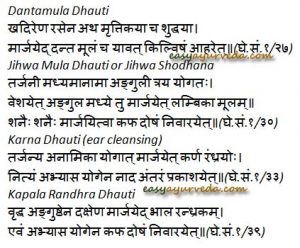 Dantamula Dhauti
खदिरेण रसेन अथ मृत्तिकया च शुद्धया।
मार्जयेद्दन्त मूलं च यावत् किल्विषं आहरेत्॥(घे.सं.१/२७)
Jihwa Mula Dhauti or Jihwa Shodhana
easyayurveda.com
तर्जनी मध्यमानामा अङ्गुली त्रय योगतः।
वेशयेत् अङ्गुल मध्ये तु मार्जयेत् लम्बिका मूलम्॥
शनैः शनैः मार्जयित्वा कफ दोषं निवारयेत्॥(घे.सं.१/३०)
Karna Dhauti (ear cleansing)
तर्जन्य अनामिका योगात् मार्जयेत् कर्ण रंध्रयोः।
नित्यं अभ्यास योगेन नाद अंतरं प्रकाशयेत्॥(घे.सं.१/३३)
Kapala Randhra Dhauti
easyayurveda.com
वृद्ध अङ्गुष्ठेन दक्षेण मार्जयेद् भाल रन्ध्रकम्।
एवं अभ्यास योगेन कफ दोषं निवारयेत्॥(घे.सं.१/३९)